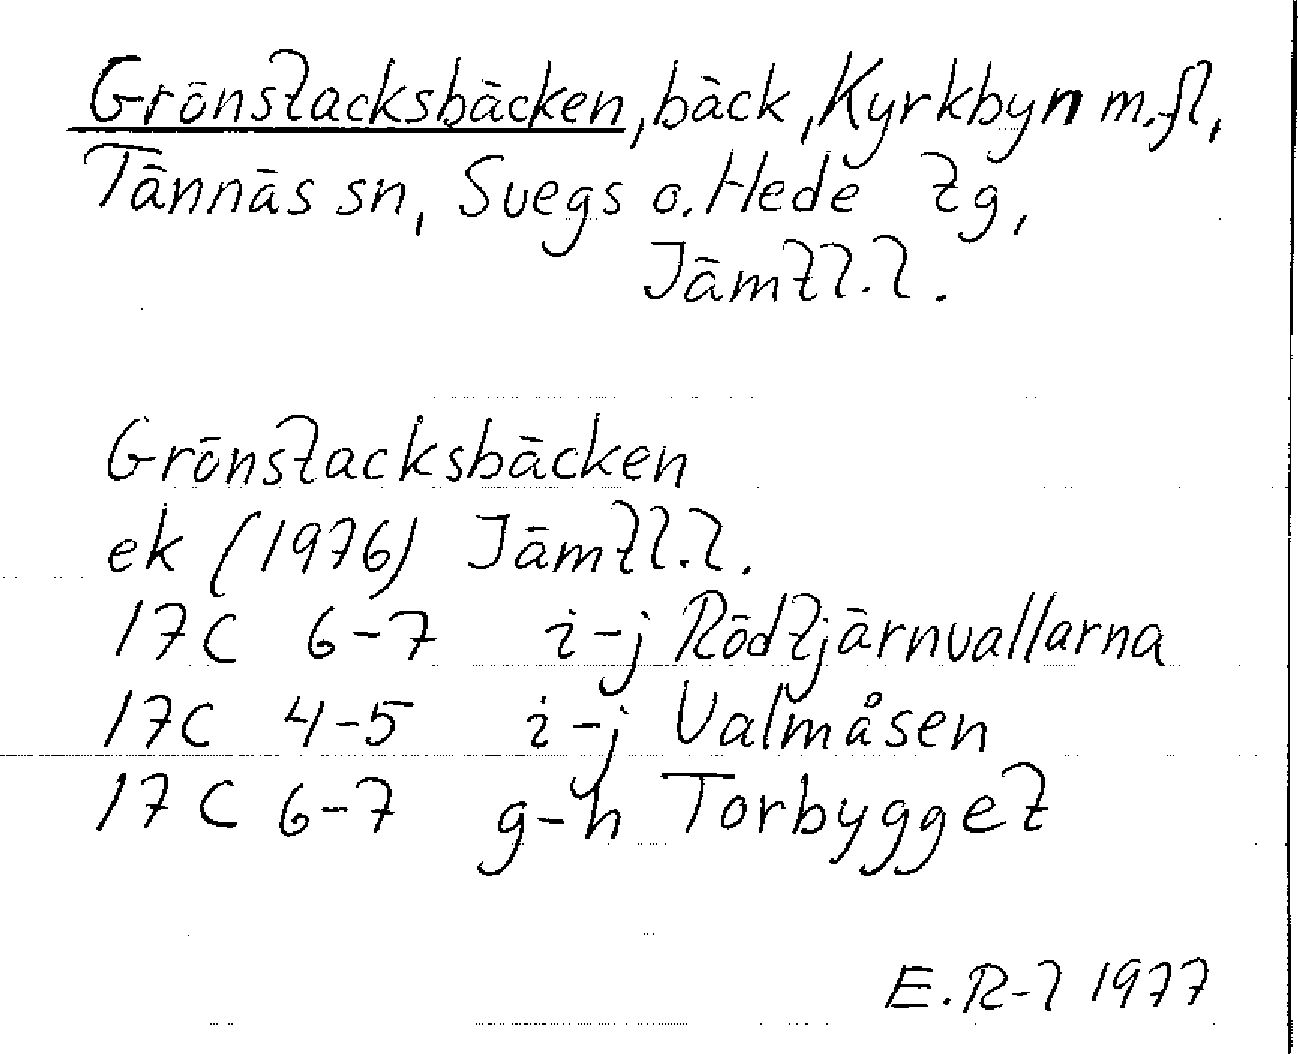 Grönstacksbäcken, bäck, Kyrkbyn m.fl,
Tännäs sn, Svegs o. Hede tg,
Jämtl.l.
Grönstacksbäcken
ek (1976) Jämtl.l.
17C 6-7 i-j Rödtjärnvallarna
17C 4-5 i-j Valmåsen
17C 6-7 g-h Torbygget
E.R-l 1977